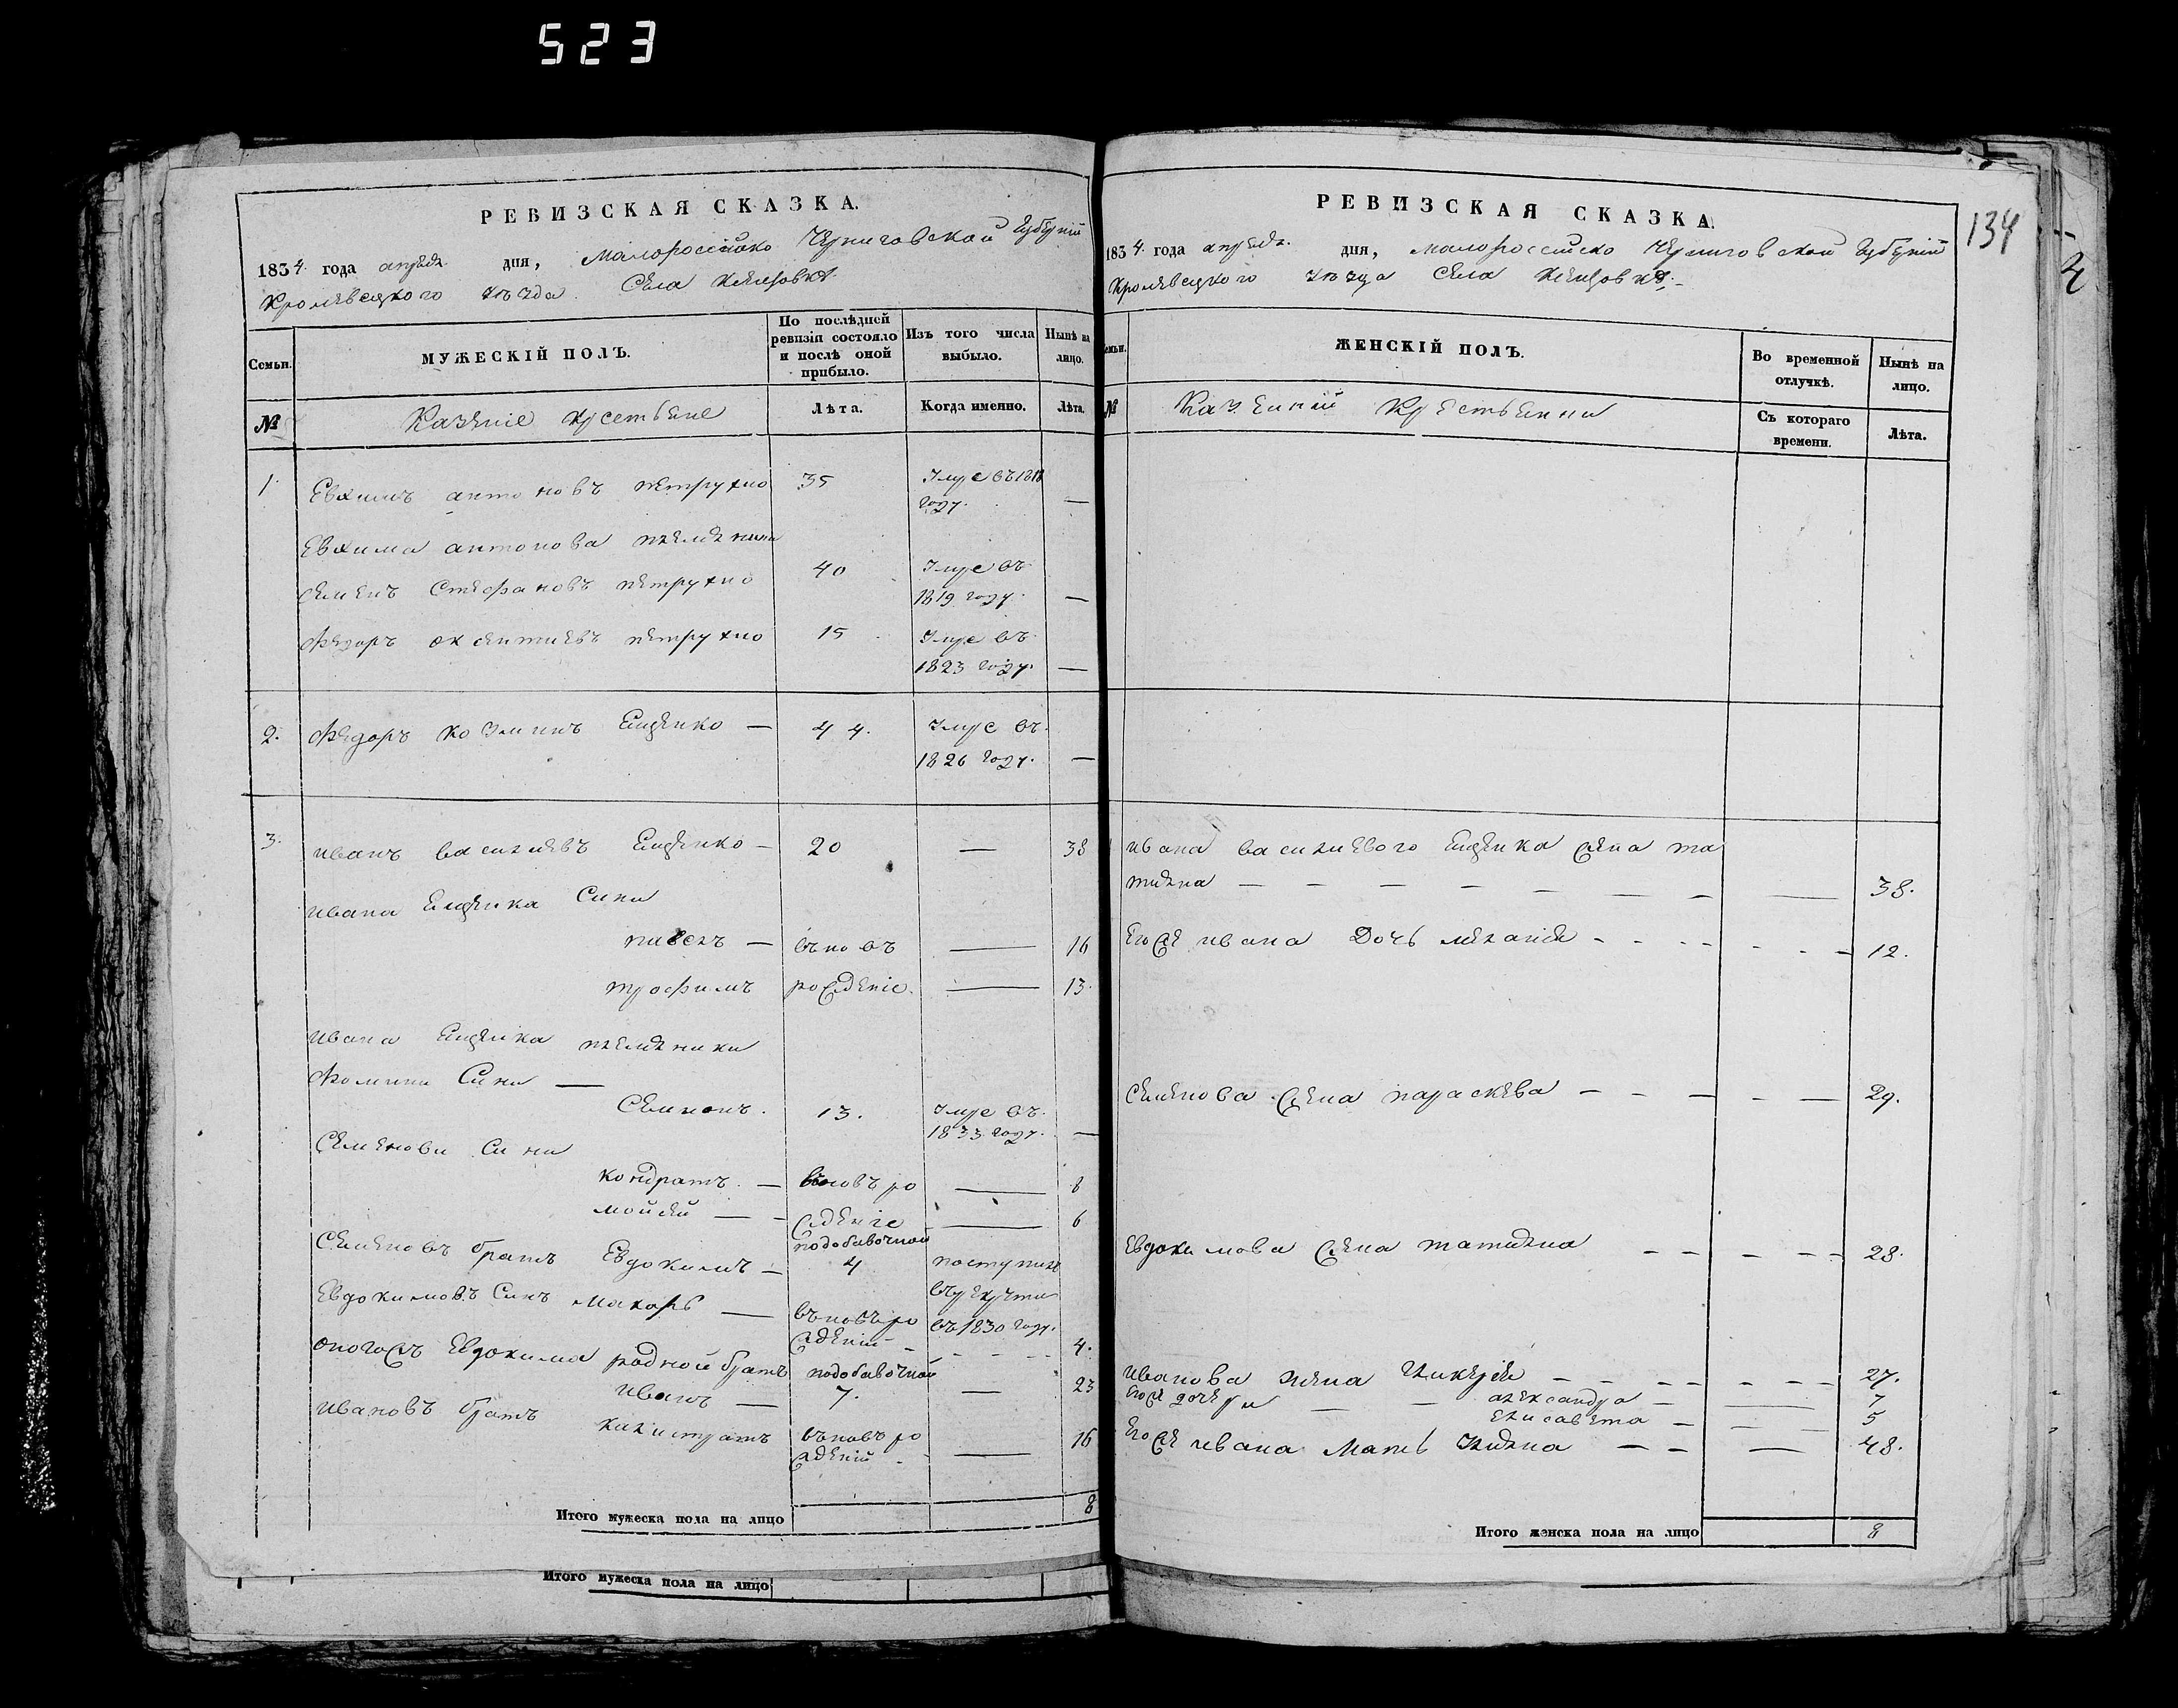 523
РЕВИЗСКАЯ СКАЗКА.
1834 года апреля дня, Малоросcийско Черниговской Губернии
Кролевецкого уезда Села
Семьи.
МУЖЕСКІЙ ПОЛЪ.
По послѣдней ревизіи состояло и послѣ оной прибыло.
Изъ того числа выбыло.
Нынѣ на лицо.
№
Казеніе
Лѣта.
Когда именно.
Лѣта.
1 Евхимъ антоновъ петрухно 35 Умре въ 1818 году. —
Евхима антонова племеники
семенъ Стефановъ петрухно 40 Умре въ 1819 году. —
Федоръ оксентиевъ петрухно 15 Умре въ 1823 году. —
2. Федоръ козминъ Ещенко — 44. Умре въ 1826 году. —
3. иванъ василиевъ Ещенко — 20 — 38
ивана Ещенка Сини
павелъ — вьновъ — 16
трофимъ рождение. — 13
ивана Ещенка племеники
Фомини Сини —
Семионъ. 13. Умре въ 1833 году. —
Семенови Сини
кондратъ. — вьновъ ро — 8
мойсей — ждение — 6
Семеновъ братъ Евдокимъ — подобавочной 4 поступилъ
Евдокимовъ Синъ макаръ — вьновъ ро въ рекрути
ждений въ 1830 году. 4.
оногожъ Евдокима родной братъ подобавочной
иванъ — 7. — 23
ивановъ братъ калистратъ вьновъ ро
ждений — 16
Итого мужеска пола на лицо 8
Итого мужеска пола на лицо
РЕВИЗСКАЯ СКАЗКА.
134
2
1834 года апреля дня, малоросcийско Черниговской Губернии
Кролевецкого уезда Села
Семьи.
ЖЕНСКІЙ ПОЛЪ.
Во временной отлучкѣ.
Нынѣ на лицо.
№
Съ котораго времени.
Лѣта.
ивана василиевого Ещенка жена та
тияна — 38.
Егоже ивана Дочь мелания — 12.
Семенова жена параскева — 29.
Евдокимова жена татияна — 28.
иванова жена Гликерия — 27.
егоже дочери — александра — 7
елисавета — 5
Егоже ивана Мать Улияна — 48.
Итого женска пола на лицо 8